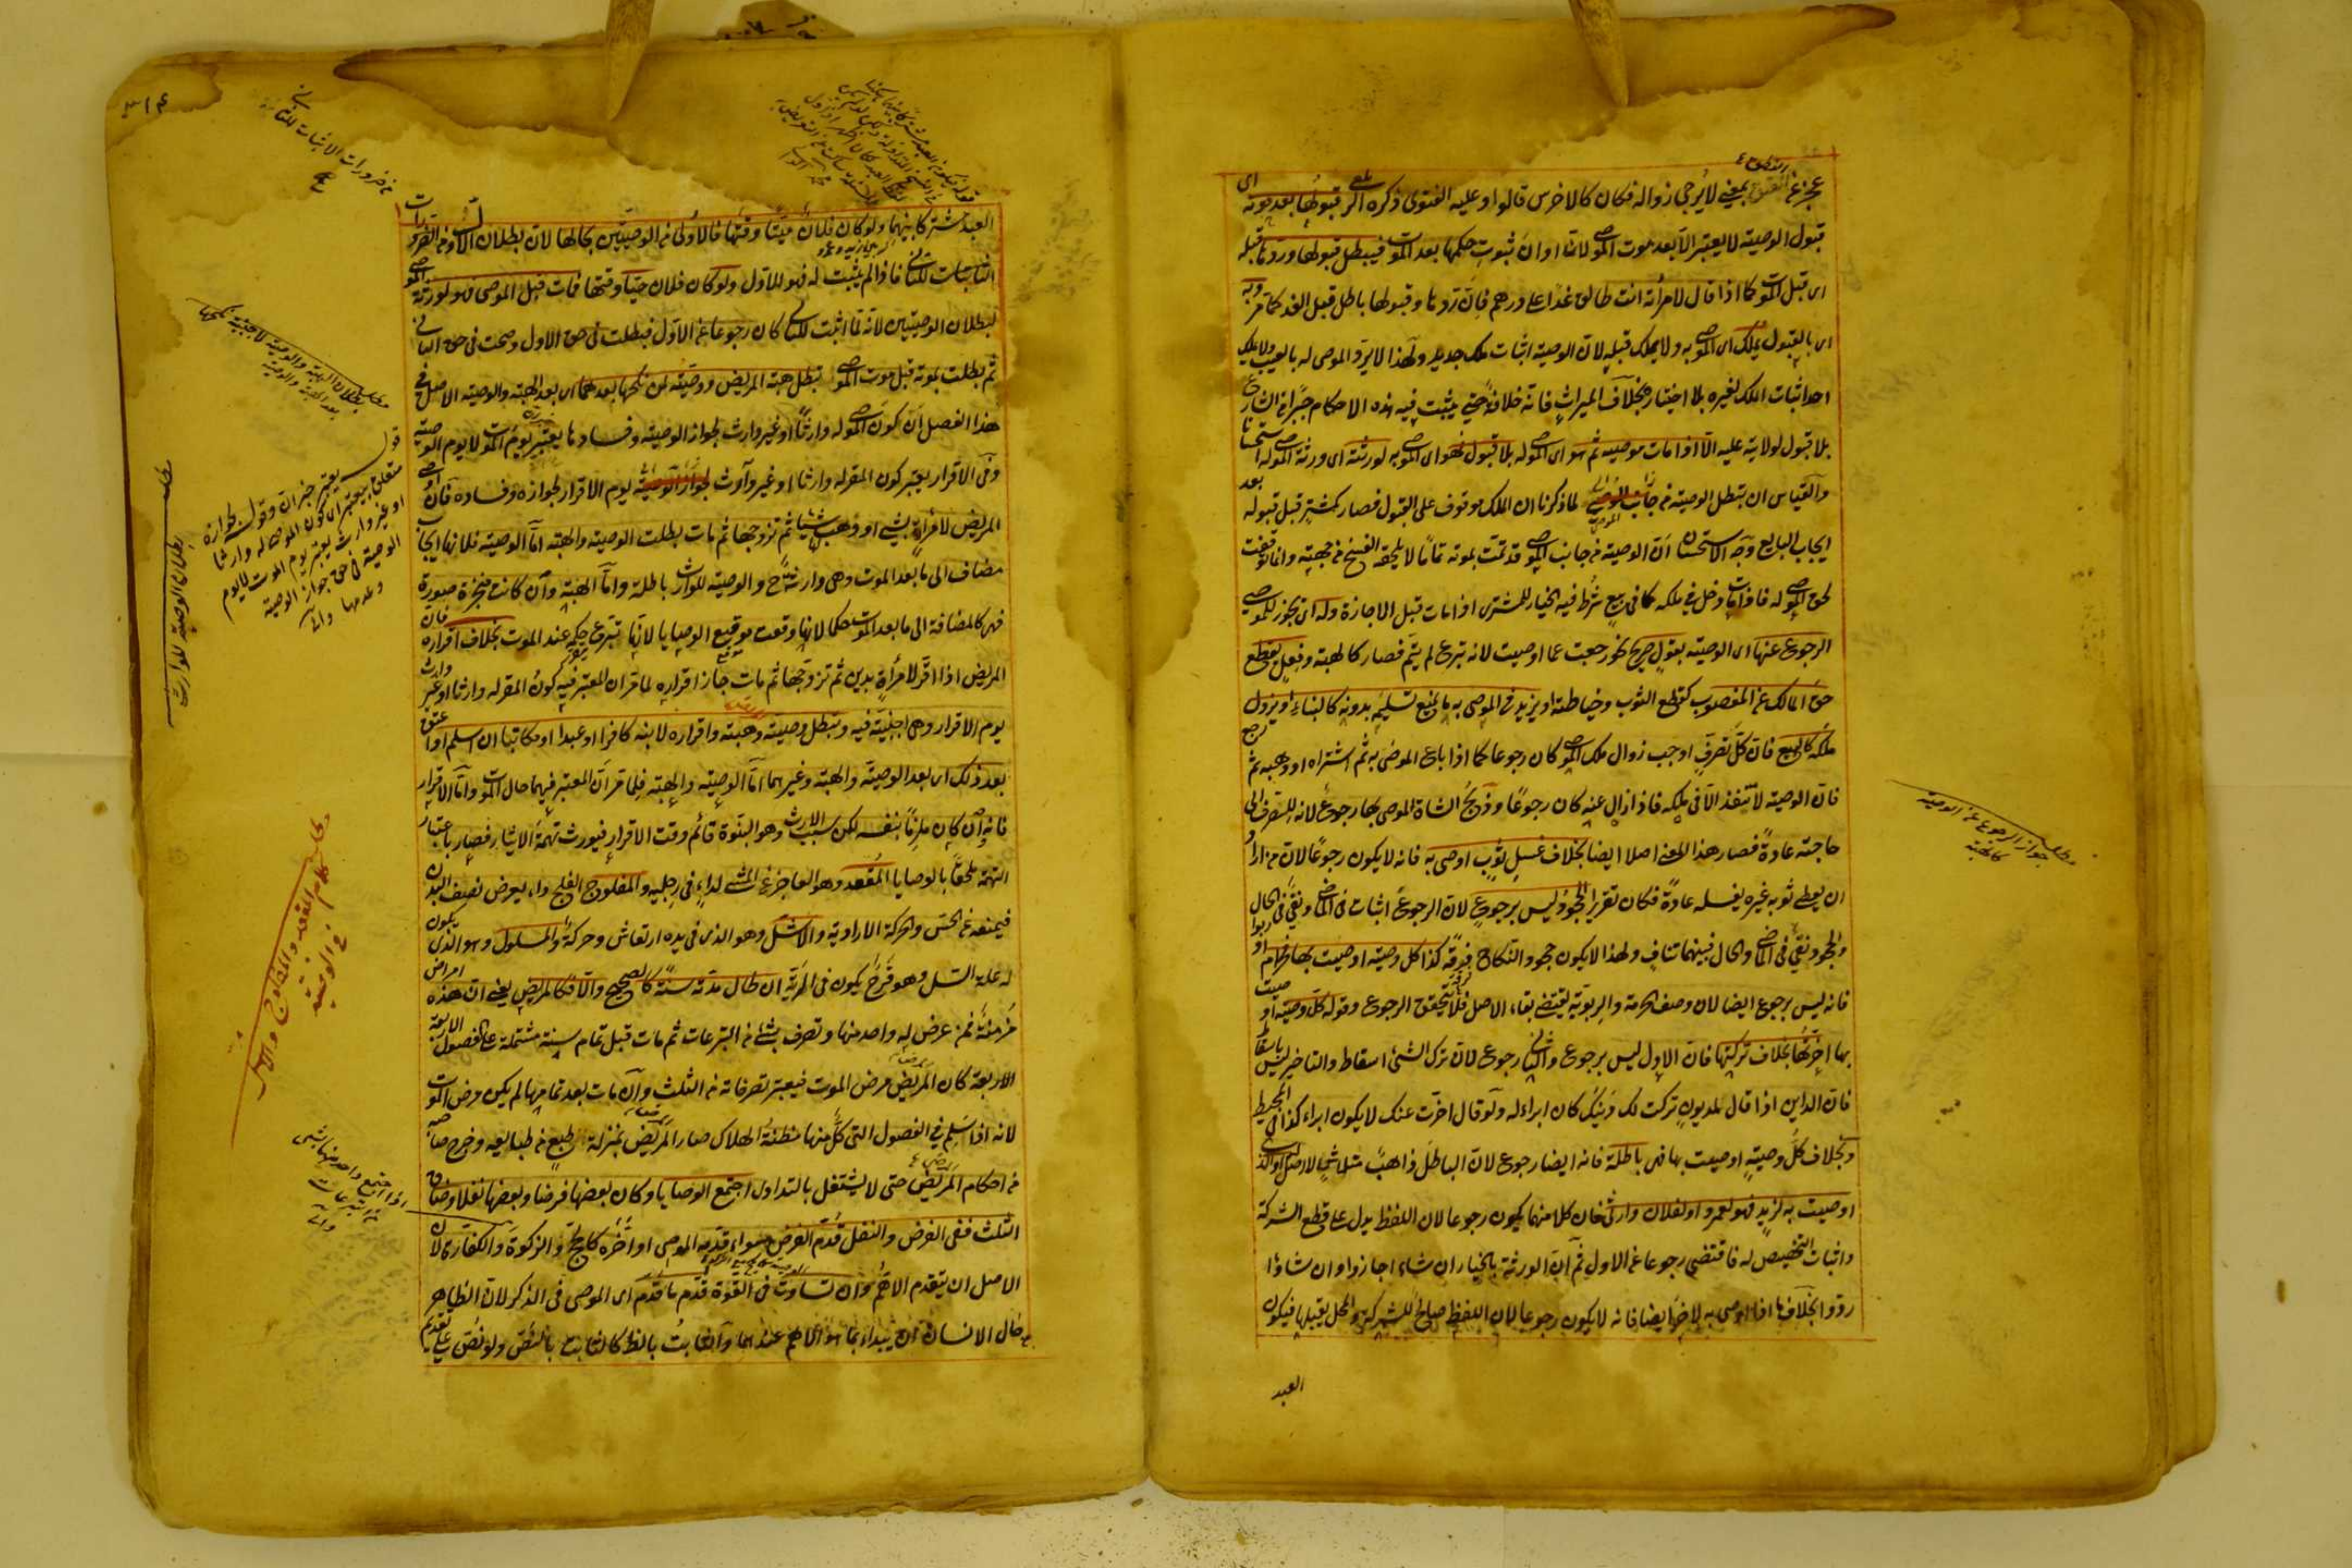 عجز عن النطق بمعنى لا يرجى زواله فكان كالاخرس قالوا وعليه الفتوى ذكره قبولها بعد موته اى
قبول الوصية لا يعتبر الا بعد موت الموصى لان اوان ثبوت حكمها بعد الموت فيبطل قبولها وردها قبله
اى قبل الموت كما اذا قال لامرأته انت طالق غدا على درهم فان ردها وقبولها باطل قبل الغد كما مر وبه
اى بالقبول يملك اى الموصى به ولا يملك قبله لان الوصية اثبات ملك جديد ولهذا لا يرد الموصى له بالعيب ولا يملك
احد اثبات الملك لغيره بلا اختياره بخلاف الميراث فانه خلافة حتى يثبت فيه هذه الاحكام جبرا من الشارع
بلا قبول لولايته عليه الا اذا مات موصيه ثم هو اى الموصى له بلا قبول فهو اى الموصى به لورثته اى ورثة الموصى له استحسانا
والقياس ان تبطل الوصية لما ذكرنا ان الملك موقوف على القبول فصار كمشتر قبل قبوله بعد
ايجاب البايع وجه الاستحسان ان الوصية من جانب الموصى قد تمت بموته تماما لا يلحقه الفسخ من جهته وانما توقفت
لحق الموصى له فاذا مات دخل فى ملكه كما فى بيع شرط فيه الخيار للمشترى اذا مات قبل الاجازة وله اى يجوز للموصى
الرجوع عنها اى الوصية بقول صريح نحو رجعت عما اوصيت لانه تبرع لم يتم فصار كالهبة وفعل يقطع
حق المالك عن المغصوب كقطع الثوب وخياطته او يزيد فى الموصى به ما يمنع تسليمه بدونه كالبناء او يزول
ملكه كالبيع فان كل تصرف اوجب زوال ملك الموصى كان رجوعا كما اذا باع الموصى به ثم اشتراه او وهبه ثم رجع
فان الوصية لا تنفذ الا فى ملكه فاذا ازال عنه كان رجوعا وذبح الشاة الموصى بها رجوع لانه للتصرف الى
حاجته عادة فصار هذا المعنى اصلا ايضا بخلاف غسل ثوب اوصى به فانه لا يكون رجوعا لان من اراد
ان يعطى ثوبه غيره يغسله عادة فكان تقريرا الجحود ليس برجوع لان الرجوع اثبات فى الماضى ونفى فى الحال
والجحود نفى فى الماضى والحال فبينهما تناف ولهذا لا يكون جحود النكاح فرقة كذا كل وصية اوصيت بها فحرام او ربوا
فانه ليس برجوع ايضا لان وصف الحرمة والربوية يقتضى بقاء الاصل فلا يتحقق الرجوع وقوله كل وصية اوصيت
بها اخرتها بخلاف تركتها فان الاول ليس برجوع والثانى رجوع لان ترك الشئ اسقاط والتاخير ليس باسقاط
فان الداين اذا قال لمديون تركت لك دينك كان ابراء له ولو قال اخرت عنك لا يكون ابراء كذا فى المحيط
وبخلاف كل وصية اوصيت بها فهى باطلة فانه ايضا رجوع لان الباطل ذاهب متلاش لا اصل له او الذى
اوصيت به لزيد فهو لعمرو او لفلان وارثى فان كلا منهما يكون رجوعا لان اللفظ يدل على قطع الشركة
واثبات التخصيص له فاقتضى رجوعا عن الاول ثم ان الورثة بالخيار ان شاء اجازوا وان شاؤا
ردوا بخلاف ما اذا اوصى به لاخر ايضا فانه لا يكون رجوعا لان اللفظ صالح للشركة والمحل يقبلها فيكون
العبد
مطلب جواز الرجوع عن الوصية
كالهبة
العبد مشتركا بينهما ولو كان فلان ميتا وقتها فالاولى من الوصيتين بحالها لان بطلان الاول من ضرورات
اثبات للثانى فاذا لم يثبت له فهو للاول ولو كان فلان حيا وقتها فمات قبل الموصى فهو لورثة الموصى
لبطلان الوصيتين لانه لما اثبت للثانى كان رجوعا عن الاول فبطلت فى حق الاول وصحت فى حق الثانى
ثم بطلت بموته قبل موت الموصى تبطل هبة المريض ووصيته لمن نكحها بعدهما اى بعد الهبة والوصية الاصل فى
هذا الفصل ان كون الموصى له وارثا او غير وارث لجواز الوصية وفسادها يعتبر يوم الموت لا يوم الوصية
وفى الاقرار يعتبر كون المقر له وارثا او غير وارث يوم الاقرار لجوازه وفساده فان اوصى
المريض لامرأة بشئ او وهب لها شيئا ثم تزوجها ثم مات بطلت الوصية والهبة اما الوصية فلانها ايجاب
مضاف الى ما بعد الموت وهى وارثته ح والوصية للوارث باطلة واما الهبة وان كانت منجزة صورة
فهى كالمضافة الى ما بعد الموت حكما لانها وقعت موقع الوصايا لانها تبرع حكمه عند الموت بخلاف اقراره فان
المريض اذا اقر لامرأة بدين ثم تزوجها ثم مات جاز اقراره لما مر ان المعتبر فيه كون المقر له وارثا او غير وارث
يوم الاقرار وهى اجنبية فيه وتبطل وصيته وهبته واقراره لابنه كافرا او عبدا او مكاتبا ان اسلم او اعتق
بعد ذلك اى بعد الوصية والهبة وغيرهما اما الوصية والهبة فلما مر ان المعتبر فيهما حال الموت واما الاقرار
فانه وان كان ملزما بنفسه لكن سبب الارث وهو البنوة قائم وقت الاقرار فيورث تهمة الايثار فصار باعتبار
التهمة ملحقا بالوصايا المقعد وهو العاجز عن المشى لداء فى رجليه والمفلوج الفلج داء يعرض نصف البدن
فيمنعه عن الحس والحركة الارادية والاشل وهو الذى فى يده ارتعاش وحركة والمسلول وهو الذى يكون
له علة السل وهو قرح يكون فى الرئة ان طال مدته سنة كالصحيح والا فكالمريض يعنى ان هذه امراض
مزمنة فمن عرض له واحد منها وتصرف بشئ من التبرعات ثم مات قبل تمام سنة مشتملة على الفصول
الاربعة كان المرض مرض الموت فيعتبر تصرفاته من الثلث وان مات بعد تمامها لم يكن مرض الموت
لانه اذا سلم فى الفصول التى كل منها مظنة الهلاك صار المرض بمنزلة طبع من طبايعه وخرج صاحبه
من احكام المريض حتى لا يشتغل بالتداوى اجتمع الوصايا وكان بعضها فرضا وبعضها نفلا وضاق
الثلث ففى الفرض والنفل قدم الفرض سواء قدمه الموصى او اخره كالحج والزكوة والكفارة لان
الاصل ان يتقدم الاهم وان تساوت فى القوة قدم ما قدم اى الموصى فى الذكر لان الظاهر
من حال الانسان ان يبداء بما هو الاهم عنده والثابت بالظاهر كالثابت بالنص ولو نص على تقديم
من ضرورات الاثبات للثانى
مطلب بطلان الهبة والوصية لاجنبية نكحها
بعد الهبة والوصية
قوله يعتبر خبر ان وقوله لجوازه
متعلق بيعتبر اى كون الموصى له وارثا
او غير وارث يعتبر يوم الموت لا يوم
الوصية فى حق جواز الوصية
وعدمها وانى
مطلب بطلان الوصية للوارث
مطلب كلام المقعد والمفلوج والاشل
فى الوصية